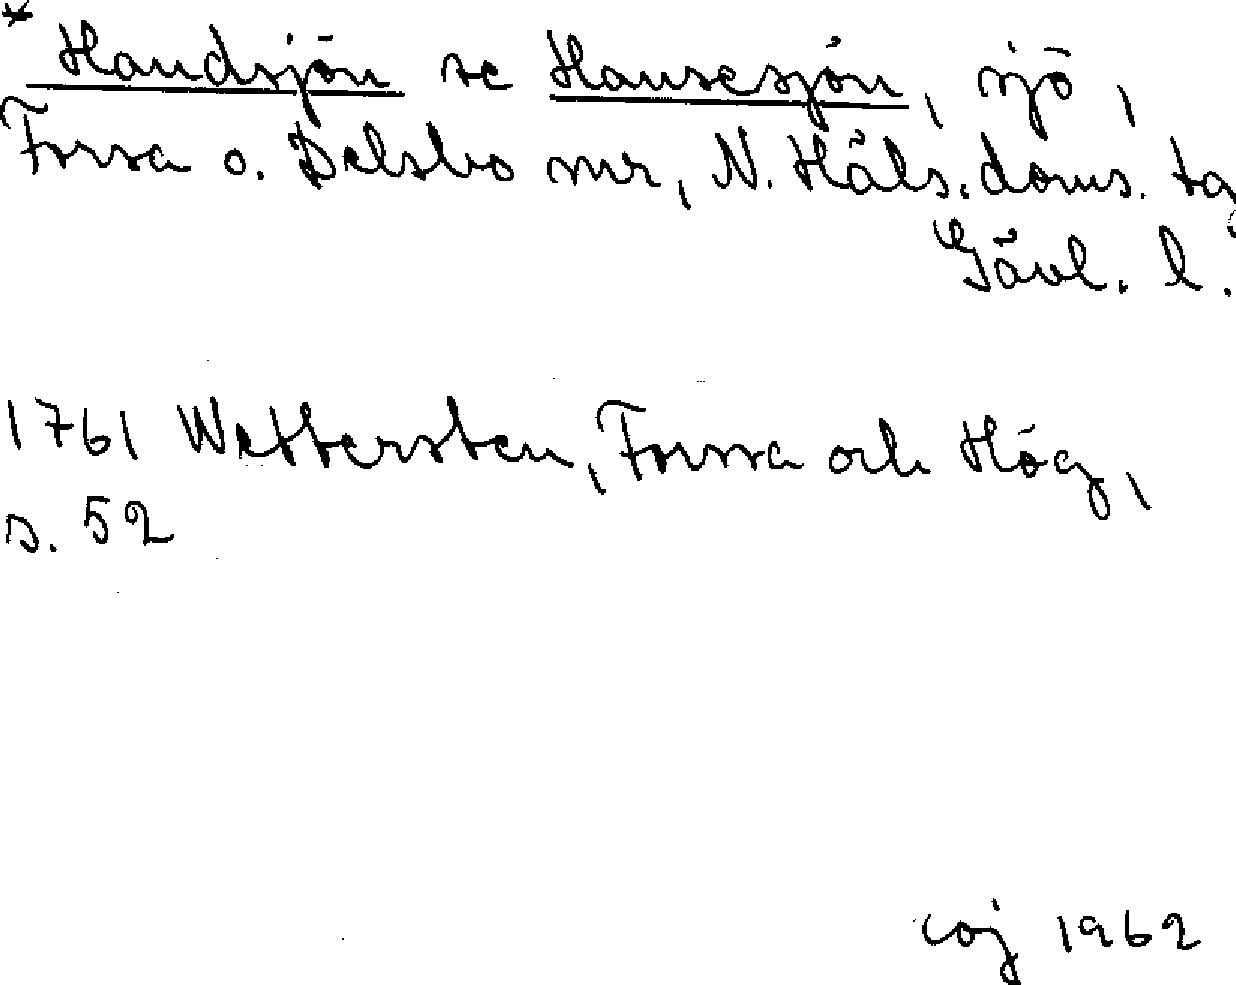 * Handsjön se Hansesjön, sjö,
Forsa o. Delsbo snr, N. Häls. doms. ta
Gävl. l.
1761 Wettersten, Forssa och Hög,
s. 52
coj 1962